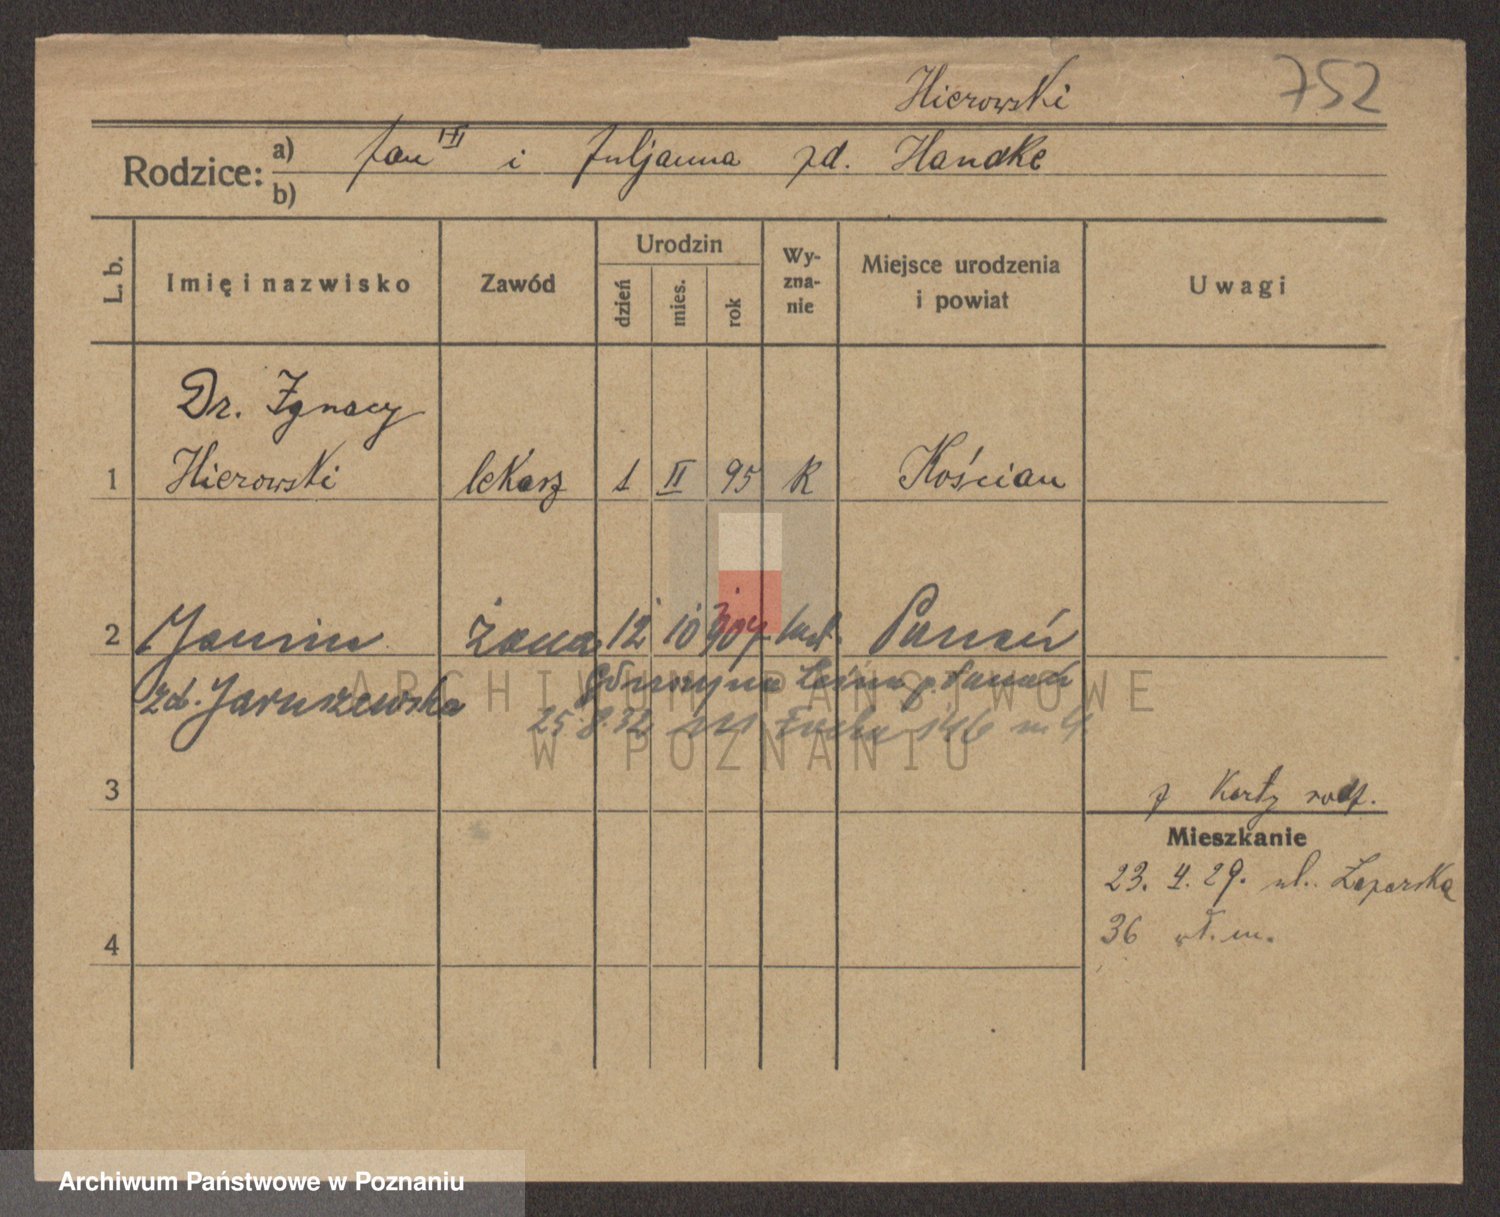 Hierowski
752
Rodzice: a) Jan III i Juljanna zd. Handke
b)
L. b. Imię i nazwisko Zawód Urodzin dzień mies. rok Wyznanie Miejsce urodzenia i powiat Uwagi
Dr. Ignacy
1 Hierowski lekarz 1 II 95 K Kościan
2 Żona 12 10 Poznań
zd. Jaruszewska
25.8.32
3 z Karty rodz.
Mieszkanie
23. 4. 29. ul.
4 36
ARCHIWUM PAŃSTWOWE
W POZNANIU
Archiwum Państwowe w Poznaniu